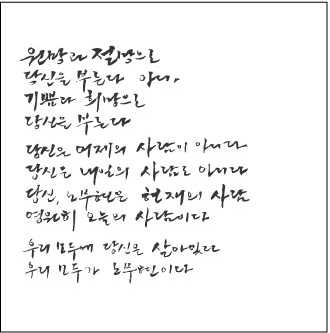 원망과 절망으로
당신을 부른다 아니,
기쁨과 희망으로
당신을 부른다
당신은 어제의 사람이 아니다
당신은 내일의 사람도 아니다
당신, 노무현은 현재의 사람
영원히 오늘의 사람이다
우리 모두에 당신은 살아있다
우리 모두가 노무현이다